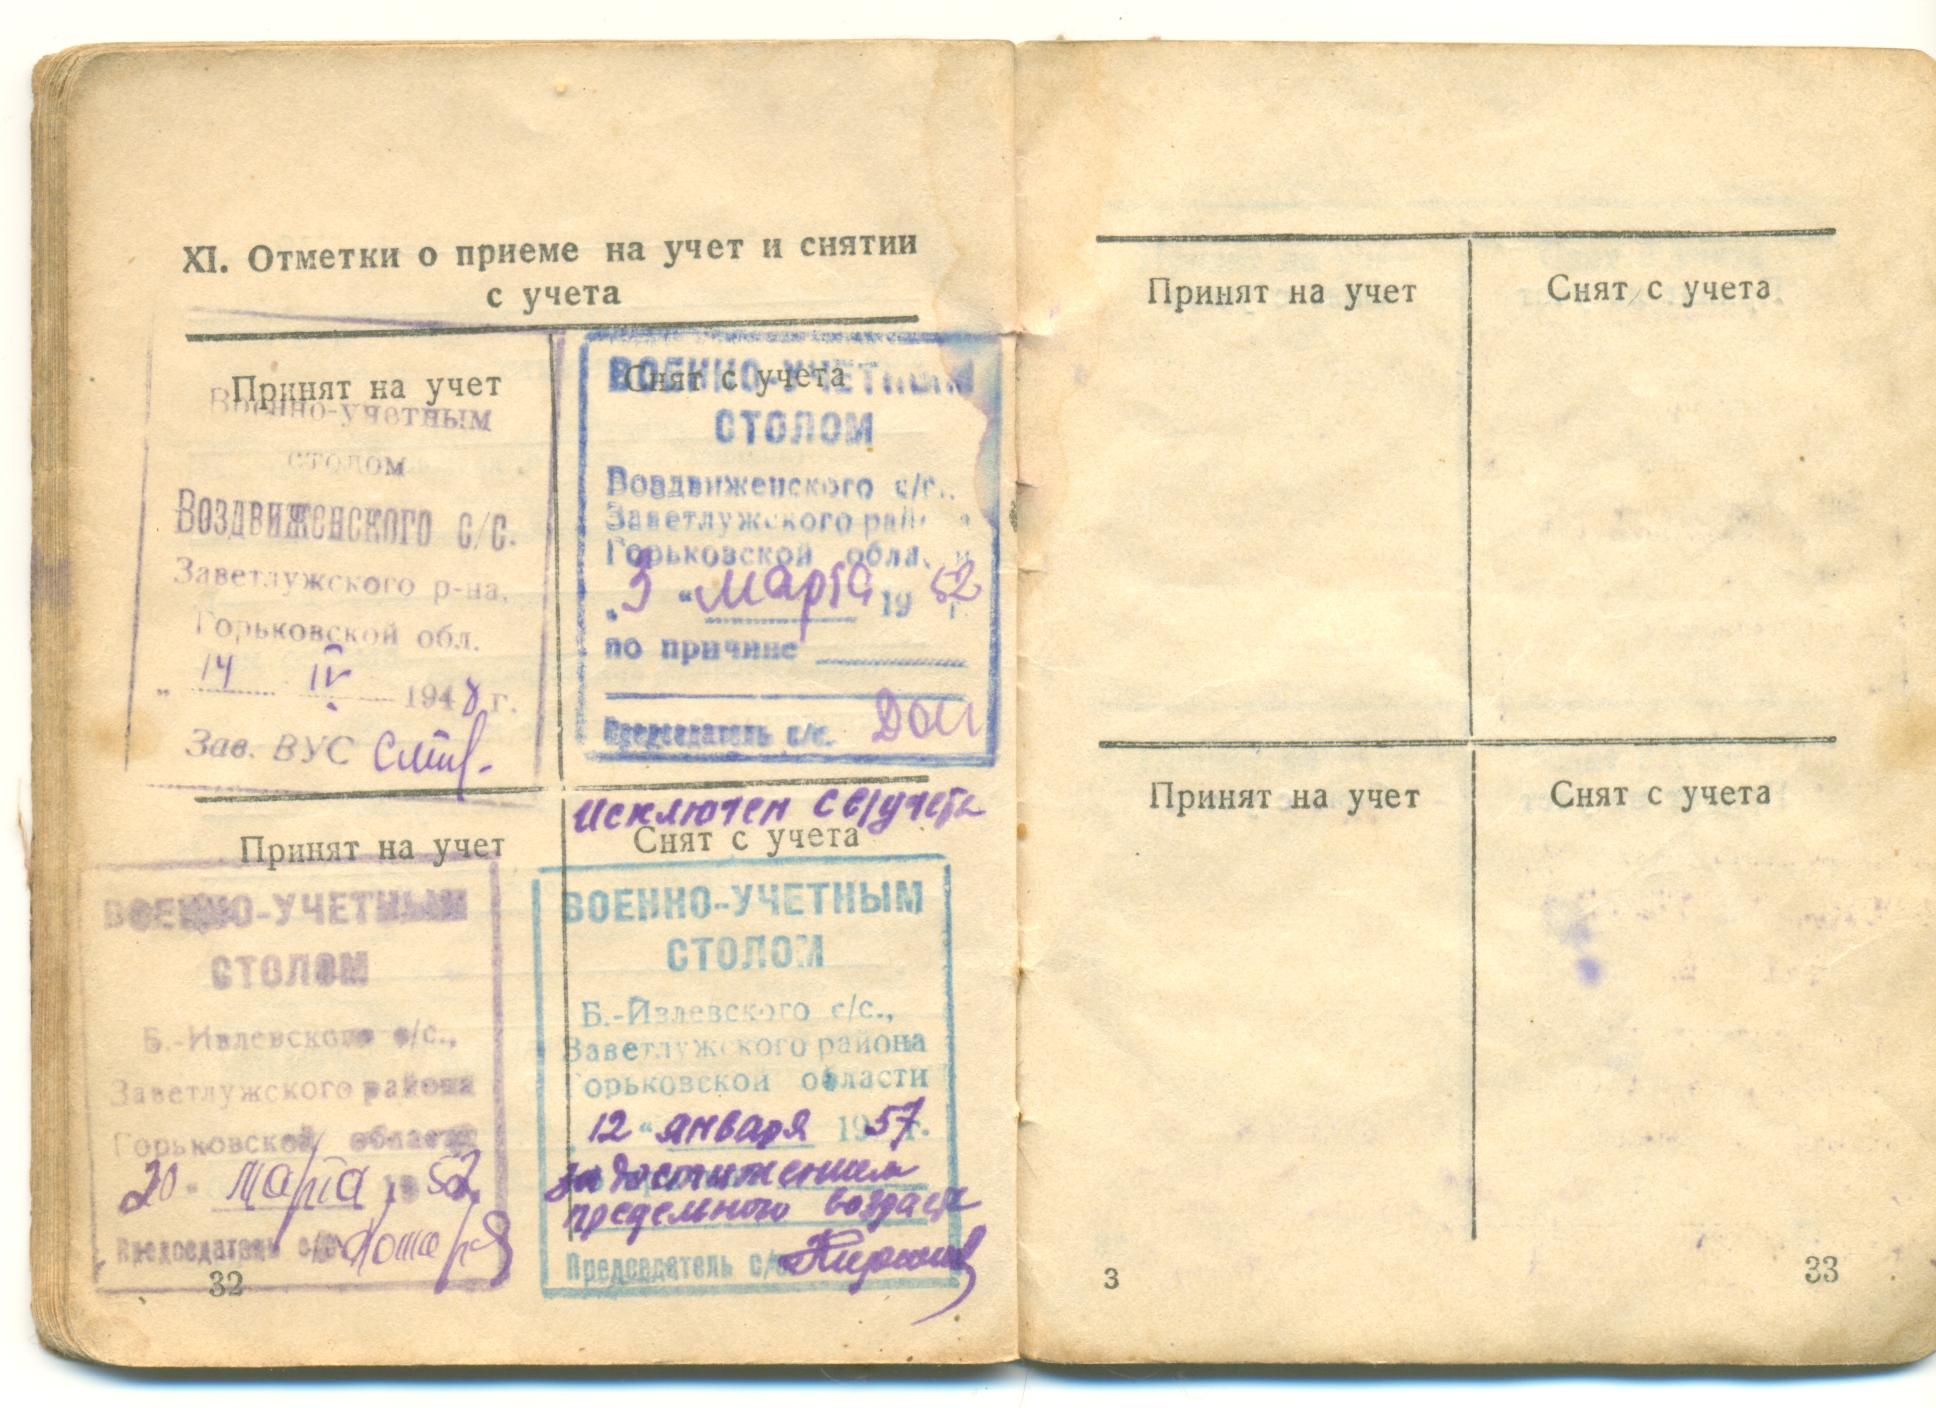 XI. Отметки о приеме на учет и снятии
с учета
Принят на учет
Военно-учетным
столом
Воздвиженского с/с.
Заветлужского р-на,
Горьковской обл.
„ 14 IV 1948 г.
Зав. ВУС
Снят с учета
ВОЕННО-УЧЕТНЫМ
СТОЛОМ
Воздвиженского с/с.,
Заветлужского района
Горьковской области
„3“ марта 1952 г.
по причине
Председатель с/с.
Принят на учет
ВОЕННО-УЧЕТНЫМ
СТОЛОМ
Б.-Излевского с/с.,
Заветлужского района
Горьковской области
20 “ марта 1952
Председатель с/с
32
исключен с в/учета
Снят с учета
ВОЕННО-УЧЕТНЫМ
СТОЛОМ
Б.-Излевского с/с.,
Заветлужского района
Горьковской области
12 “ января 1957 г.
за достижением
предельного возраста
Председатель с/с
Принят на учет
Снят с учета
Принят на учет
Снят с учета
3
33